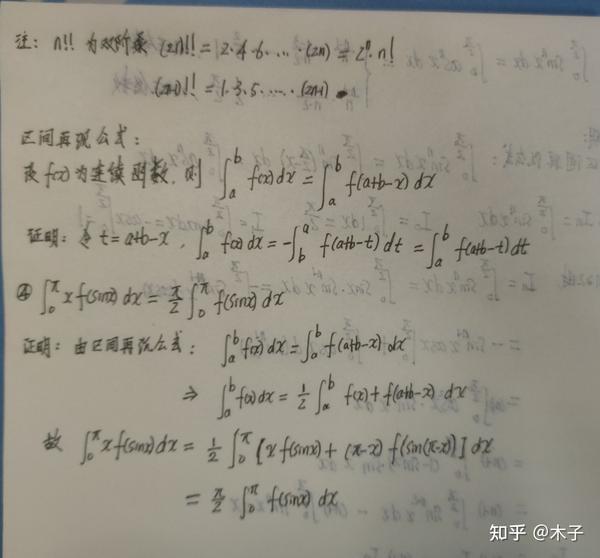 注: n!! 为双阶乘 (2n)!! = 2·4·6·…·(2n) = 2ⁿ·n!
(2n-1)!! = 1·3·5·……·(2n-1)
区间再现公式:
设 f(x) 为连续函数, 则 ∫_a^b f(x) dx = ∫_a^b f(a+b-x) dx
证明: 令 t=a+b-x, ∫_a^b f(x) dx = -∫_b^a f(a+b-t) dt = ∫_a^b f(a+b-t) dt
④ ∫_0^π x f(sinx) dx = π/2 ∫_0^π f(sinx) dx
证明: 由区间再现公式: ∫_a^b f(x) dx = ∫_a^b f(a+b-x) dx
⇒ ∫_a^b f(x) dx = 1/2 ∫_a^b f(x) + f(a+b-x) dx
故 ∫_0^π x f(sinx) dx = 1/2 ∫_0^π [x f(sinx) + (π-x) f(sin(π-x))] dx
= π/2 ∫_0^π f(sinx) dx
知乎 @木子